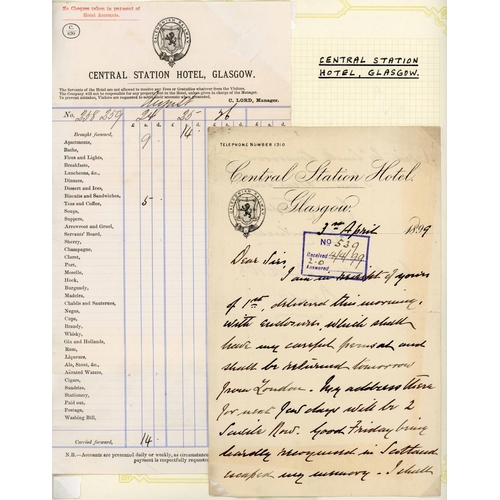 No Cheques taken in payment of
Hotel Accounts.
CENTRAL STATION HOTEL, GLASGOW.
The Servants of the Hotel are not allowed to receive any Fees or Gratuities whatever from the Visitors.
The Company will not be responsible for any property lost in the Hotel, unless given in charge of the Manager.
To prevent mistakes, Visitors are requested to
C. LORD, Manager.
August
No. 258 259 24 25 26
Brought forward, 9 14
Apartments,
Baths,
Fires and Lights,
Breakfasts,
Luncheons, &c.,
Dinners,
Dessert and Ices,
Biscuits and Sandwiches,
Teas and Coffee, 5
Soups,
Suppers,
Arrowroot and Gruel,
Servants' Board,
Sherry,
Champagne,
Claret,
Port,
Moselle,
Hock,
Burgundy,
Madeira,
Chablis and Sauternes,
Negus,
Cape,
Brandy,
Whisky,
Gin and Hollands,
Rum,
Liqueurs,
Ale, Stout, &c.,
Aerated Waters,
Cigars,
Sundries,
Stationery,
Paid out,
Postage,
Washing Bill,
Carried forward, 14
N.B.—Accounts are presented daily or weekly, as circumstances
payment is respectfully requested
CENTRAL STATION
HOTEL, GLASGOW.
TELEPHONE NUMBER 1310
Central Station Hotel.
Glasgow.
3rd April 1899
No 539
Received 4/4/99
Answered
Dear Sirs,
I am in receipt of yours
of 1st, delivered this morning,
with enclosures which shall
have my careful perusal and
shall be returned tomorrow
from London. My address there
for next few days will be 2
Savile Row. Good Friday being
hardly recognised in Scotland
escaped my memory. I shall